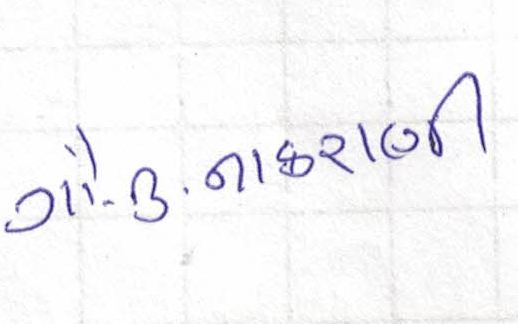 ગૌ. ઉ. નાકરાણી